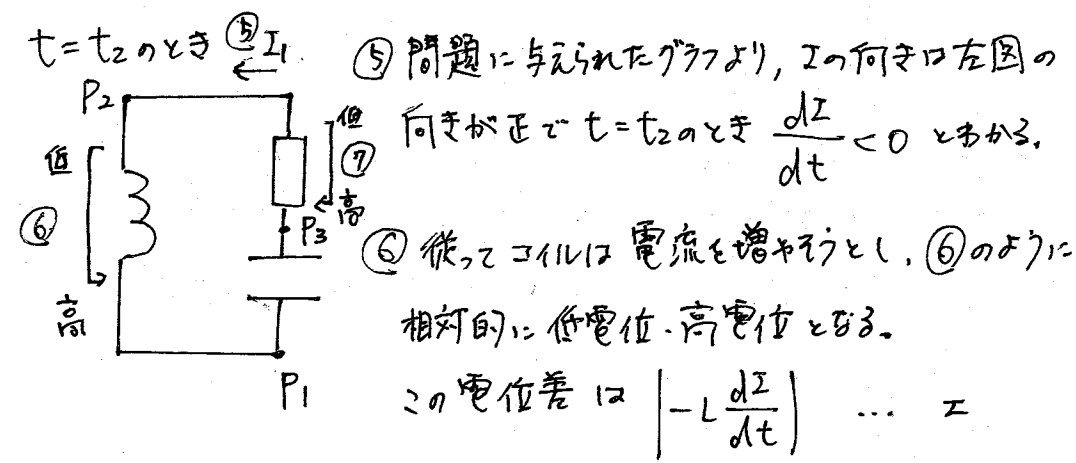 t=t₂のとき ⑤ I₁
P₂
低
⑥
高
低
⑦
高
P₃
P₁
⑤ 問題に与えられたグラフより, Iの向きは左図の
向きが正で t=t₂のとき dI/dt < 0 とわかる。
⑥ 従ってコイルは電流を増やそうとし, ⑥のように
相対的に低電位・高電位となる。
この電位差は |-L dI/dt| … エ